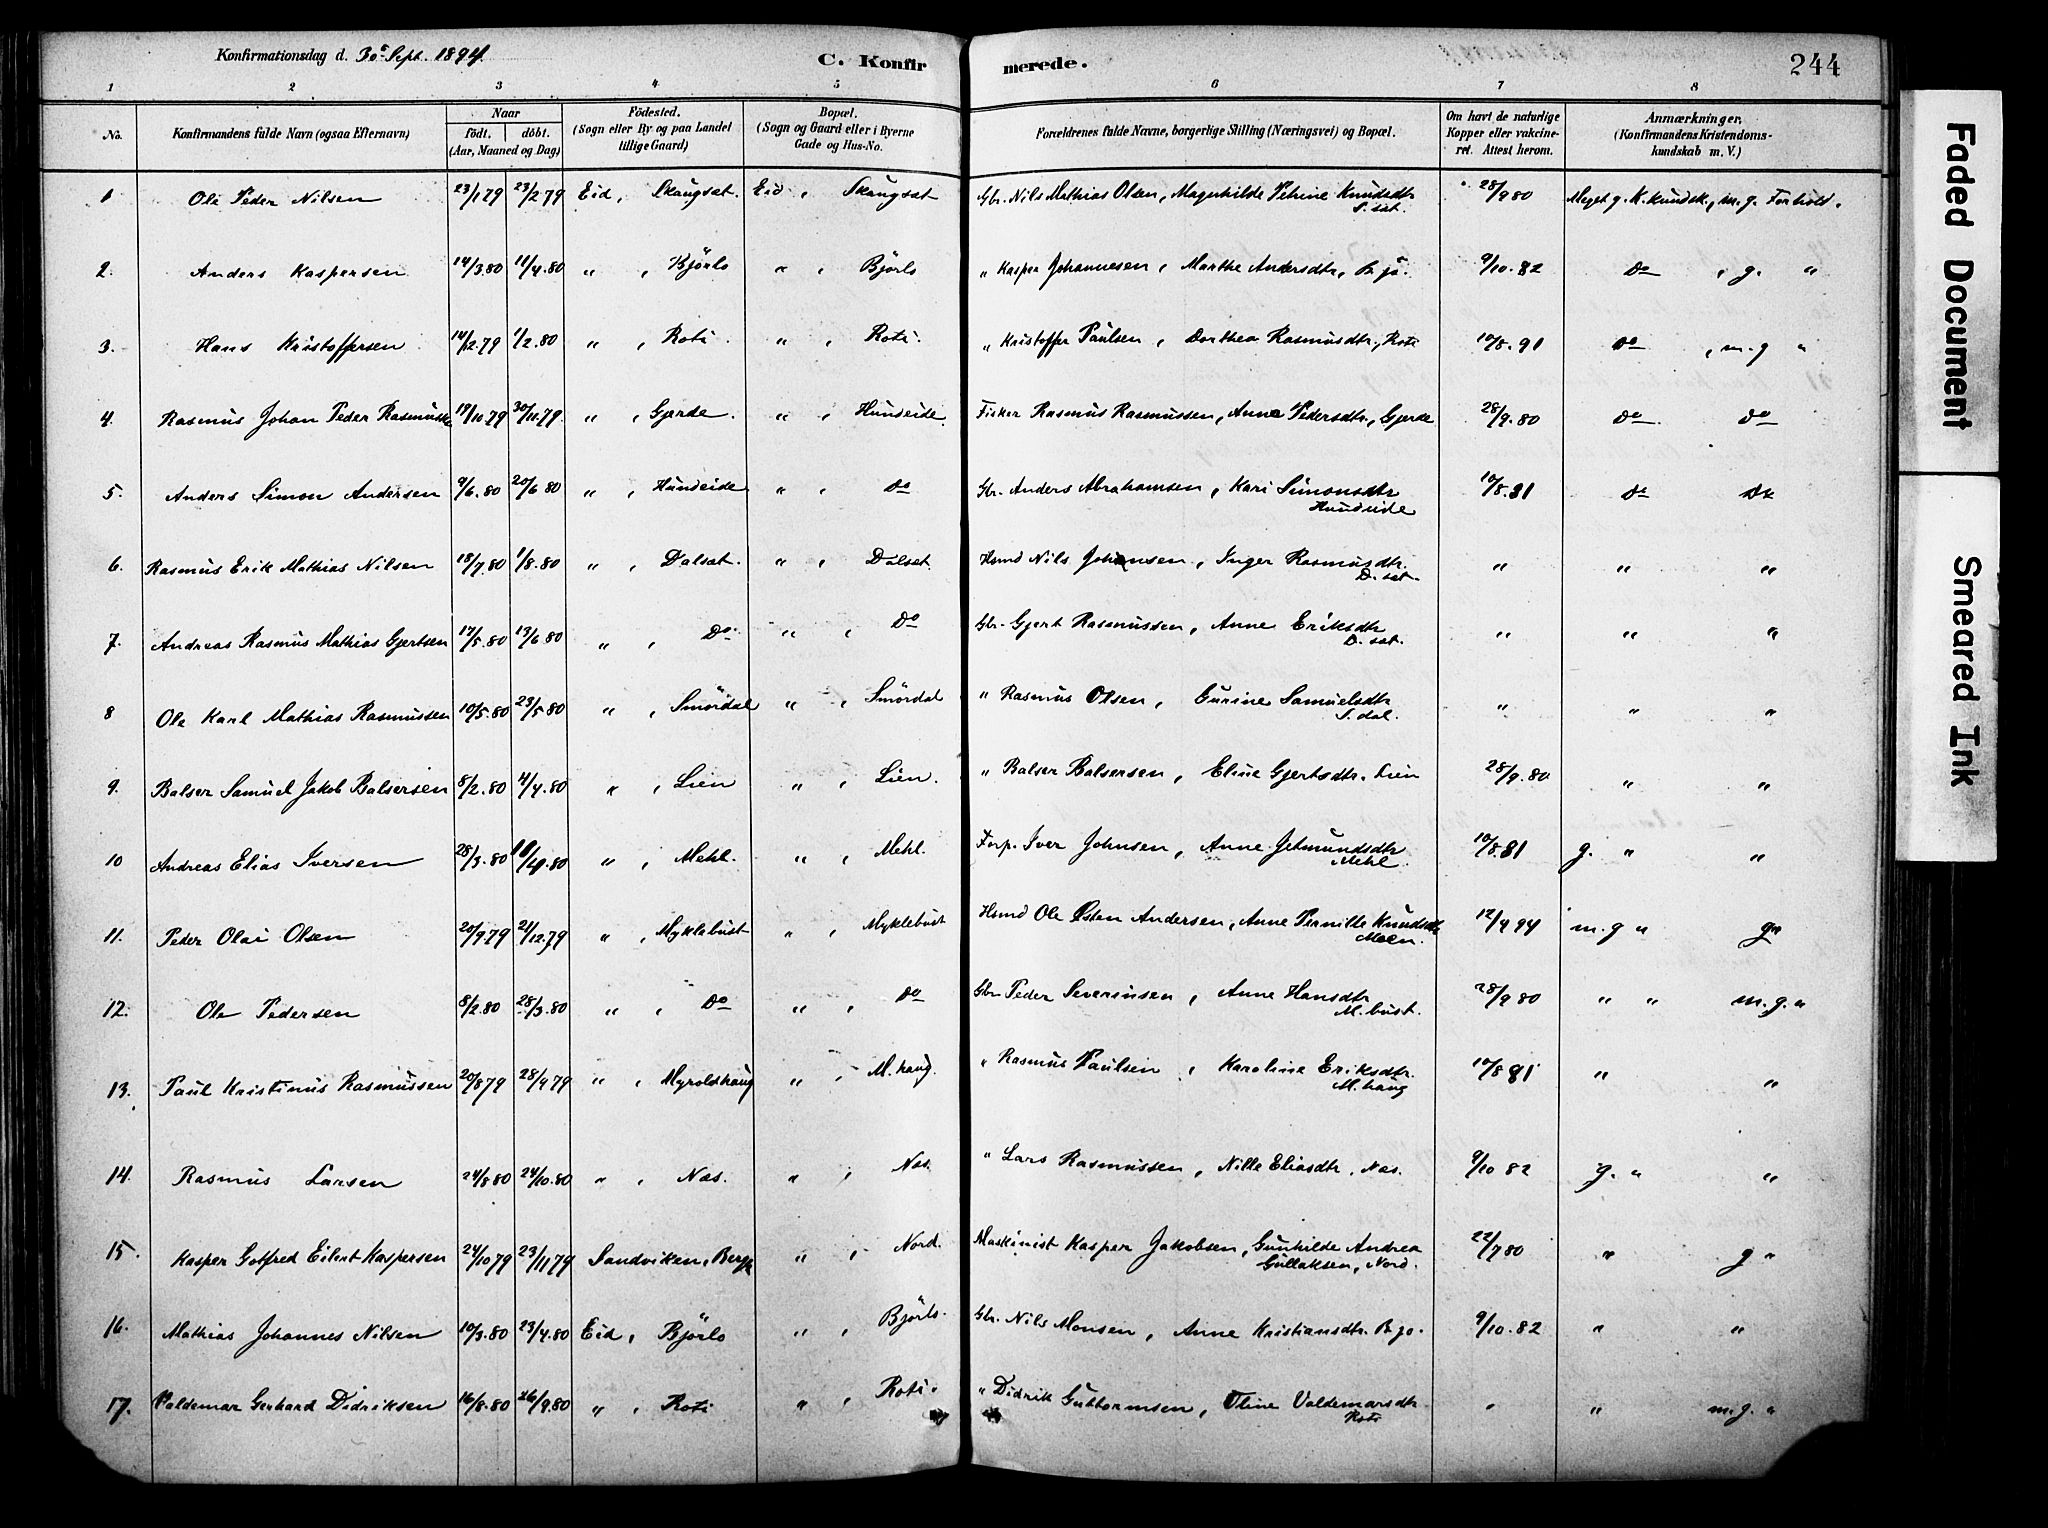 Konfirmationsdag d. 30 Sept. 1894.
C. Konfirmerede.
244
1 2 3 4 5 6 7 8
No. Konfirmandens fulde Navn (ogsaa Efternavn) Naar födt. döbt. (Aar, Maaned og Dag) Födested. (Sogn eller By og paa Landet tillige Gaard) Bopæl. (Sogn og Gaard eller i Byerne Gade og Hus-No. Forældrenes fulde Navne, borgerlige Stilling (Næringsvei) og Bopæl. Om havt de naturlige Kopper eller vakcineret. Attest herom. Anmærkninger, (Konfirmandens Kristendomskundskab m. V.)
1 Ole Peder Nilsen 23/1 79 23/2 79 Eid, Skaugsæt. Eid, Skaugsæt Gbr. Nils Mathias Olsen, Magnhilde Petrine Knudsdtr S.sæt. 28/9 80 Meget g. K.kundsk., m.g. Forhold.
2. Anders Kaspersen 14/3.80 11/4.80 " , Björlo " , Björlo " Kasper Johannesen, Marthe Andersdtr, Bjö. 9/10.82 Do , g. "
3. Hans Kristoffersen 14/12.79 1/2.80 " , Roti. " , Roti. " Kristoffer Paulsen, Dorthea Rasmusdtr, Roti 10/8.91 Do , m.g "
4. Rasmus Johan Peder Rasmussen 19/10.79 30/11.79. " , Gjerde. " , Hundeide. Fisker Rasmus Rasmussen, Anne Pedersdtr, Gjerde 28/9.80 Do Do
5. Anders Simon Andersen 9/6.80 20/6 80 " , Hundeide " , Do Gbr. Anders Abrahamsen, Kari Simonsdtr Hundeide 10/8.81 Do Do
6. Rasmus Erik Mathias Nilsen 18/7.80 1/8.80 " , Dalsæt. " , Dalsæt. Hsmd Nils Johansen, Inger Rasmusdtr. D.sæt. " " "
7. Andreas Rasmus Mathias Gjertsen 17/5.80 13/6.80 " , Do. " , Do Gbr. Gjert Rasmussen, Anne Eriksdtr D.sæt. " " "
8 Ole Karl Mathias Rasmussen 10/5.80 23/5.80 " , Smördal " , Smördal " Rasmus Olsen, Gurine Samuelsdtr S.dal. " " "
9. Balser Samuel Jakob Balsersen 8/2.80 4/4.80 " , Lien " , Lien. " Balser Balsersen, Eline Gjertsdtr. Lien 28/9.80 " "
10 Andreas Elias Iversen 28/3.80 " , Mehl. " , Mehl. Forp. Iver Johnsen, Anne Jetmundsdtr Mehl 10/8.81 g. " "
11. Peder Olai Olsen 20/9.79 21/12.79 " , Myklebust " , Myklebust Hsmd Ole Østen Andersen, Anne Pernille Knudsdtr Moen. 12/4 94 m.g " g"
12. Ole Pedersen 8/2.80 28/3.80 " , Do " , Do Gbr Peder Severinsen, Anne Hansdtr M.bust. 28/9 80 " " m.g. "
13. Paul Kristinus Rasmussen 20/8 79 28/9 79 " , Myroldhaug " , M.haug. " Rasmus Paulsen, Karoline Eriksdtr. M.haug 10/8 81 " "
14. Rasmus Larsen 24/8 80 24/10.80 " , Næs. " , Næs. " Lars Rasmussen, Nille Eliasdtr, Næs. 9/10 82 g. " "
15. Kasper Gotfred Eilert Kaspersen 24/10 79 23/11 79 Sandviken, Berg. " , Nord. Maskinist Kasper Jakobsen, Gunhilde Andrea Gullaksen, Nord. 22/7 80 " g "
16. Mathias Johannes Nilsen 10/3.80 23/4.80 Eid, Björlo " , Björlo. Gbr. Nils Monsen, Anne Kristiansdtr. Bjo. 9/10.82 " "
17. Valdemar Gerhard Didriksen 16/8.80 26/9.80 " , Roti " , Roti. " Didrik Guttormsen, Oline Valdemarsdtr. Roti " " m.g. "
Faded Document
Smeared Ink